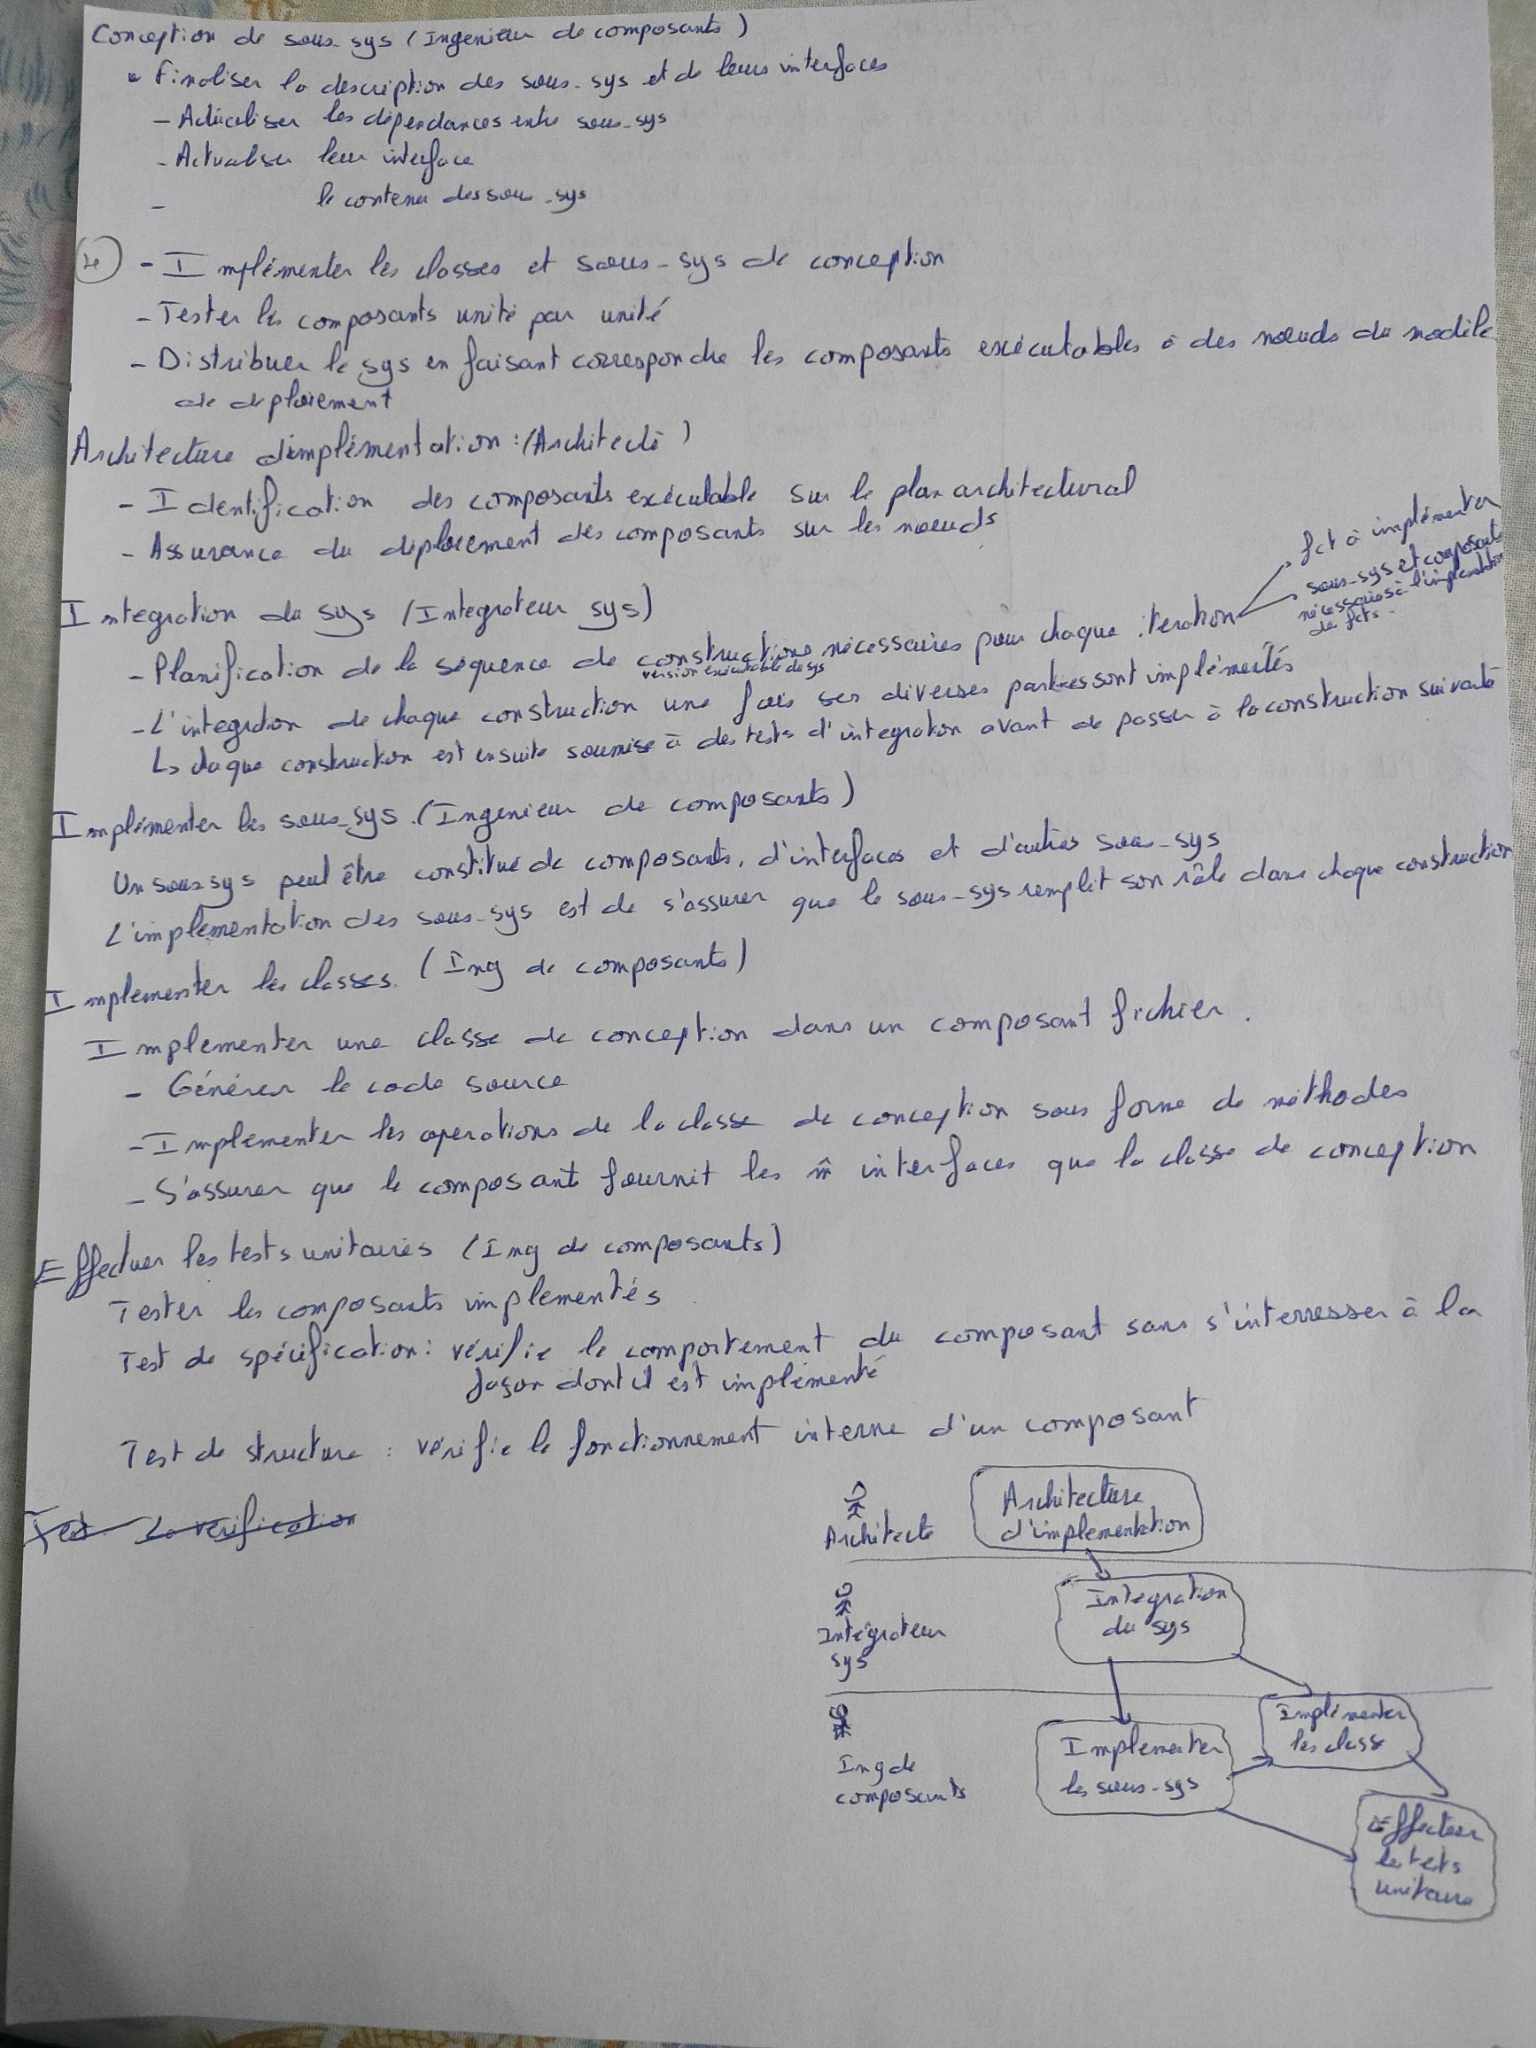 Conception de sous-sys (Ingenieur de composants)
• Finaliser la description des sous-sys et de leurs interfaces
- Actualiser les dépendances entre sous-sys
- Actualiser leur interface
- le contenu des sous-sys
- Implémenter les classes et sous-sys de conception
- Tester les composants unité par unité
- Distribuer le sys en faisant correspondre les composants exécutables à des nœuds du modèle
de deploiement
Architecture d'implémentation : (Architecte)
- Identification des composants exécutable sur le plan architectural
- Assurance du deploiement des composants sur les nœuds
fct à implémenter
sous-sys et composants
nécessaires à l'implentation
de fcts.
Integration du sys (Integrateur sys)
- Planification de la séquence de constructions nécessaires pour chaque iteration
version exécutable de sys
- L'integration de chaque construction une fois ses diverses parties sont implémentés
↳ chaque construction est ensuite soumise à des tests d'integration avant de passer à la construction suivante
Implémenter les sous-sys. (Ingenieur de composants)
Un sous-sys peut être constitué de composants, d'interfaces et d'autres sous-sys
L'implementation des sous-sys est de s'assurer que le sous-sys remplit son rôle dans chaque construction
Implementer les classes. (Ing de composants)
Implementer une classe de conception dans un composant fichier.
- Générer le code source
- Implementer les operations de la classe de conception sous forme de méthodes
- S'assurer que le composant fournit les m̂ interfaces que la classe de conception
Effectuer les tests unitaires (Ing de composants)
Tester les composants implementés
Test de spécification : vérifie le comportement du composant sans s'interresser à la
façon dont il est implémenté
Test de structure : vérifie le fonctionnement interne d'un composant
Test La vérification
Architecte
Architecture
d'implementation
Intégrateur
sys
Integration
du sys
Ing de
composants
Implementer
les sous-sys
Implémenter
les classe
Effectuer
les tests
unitaire